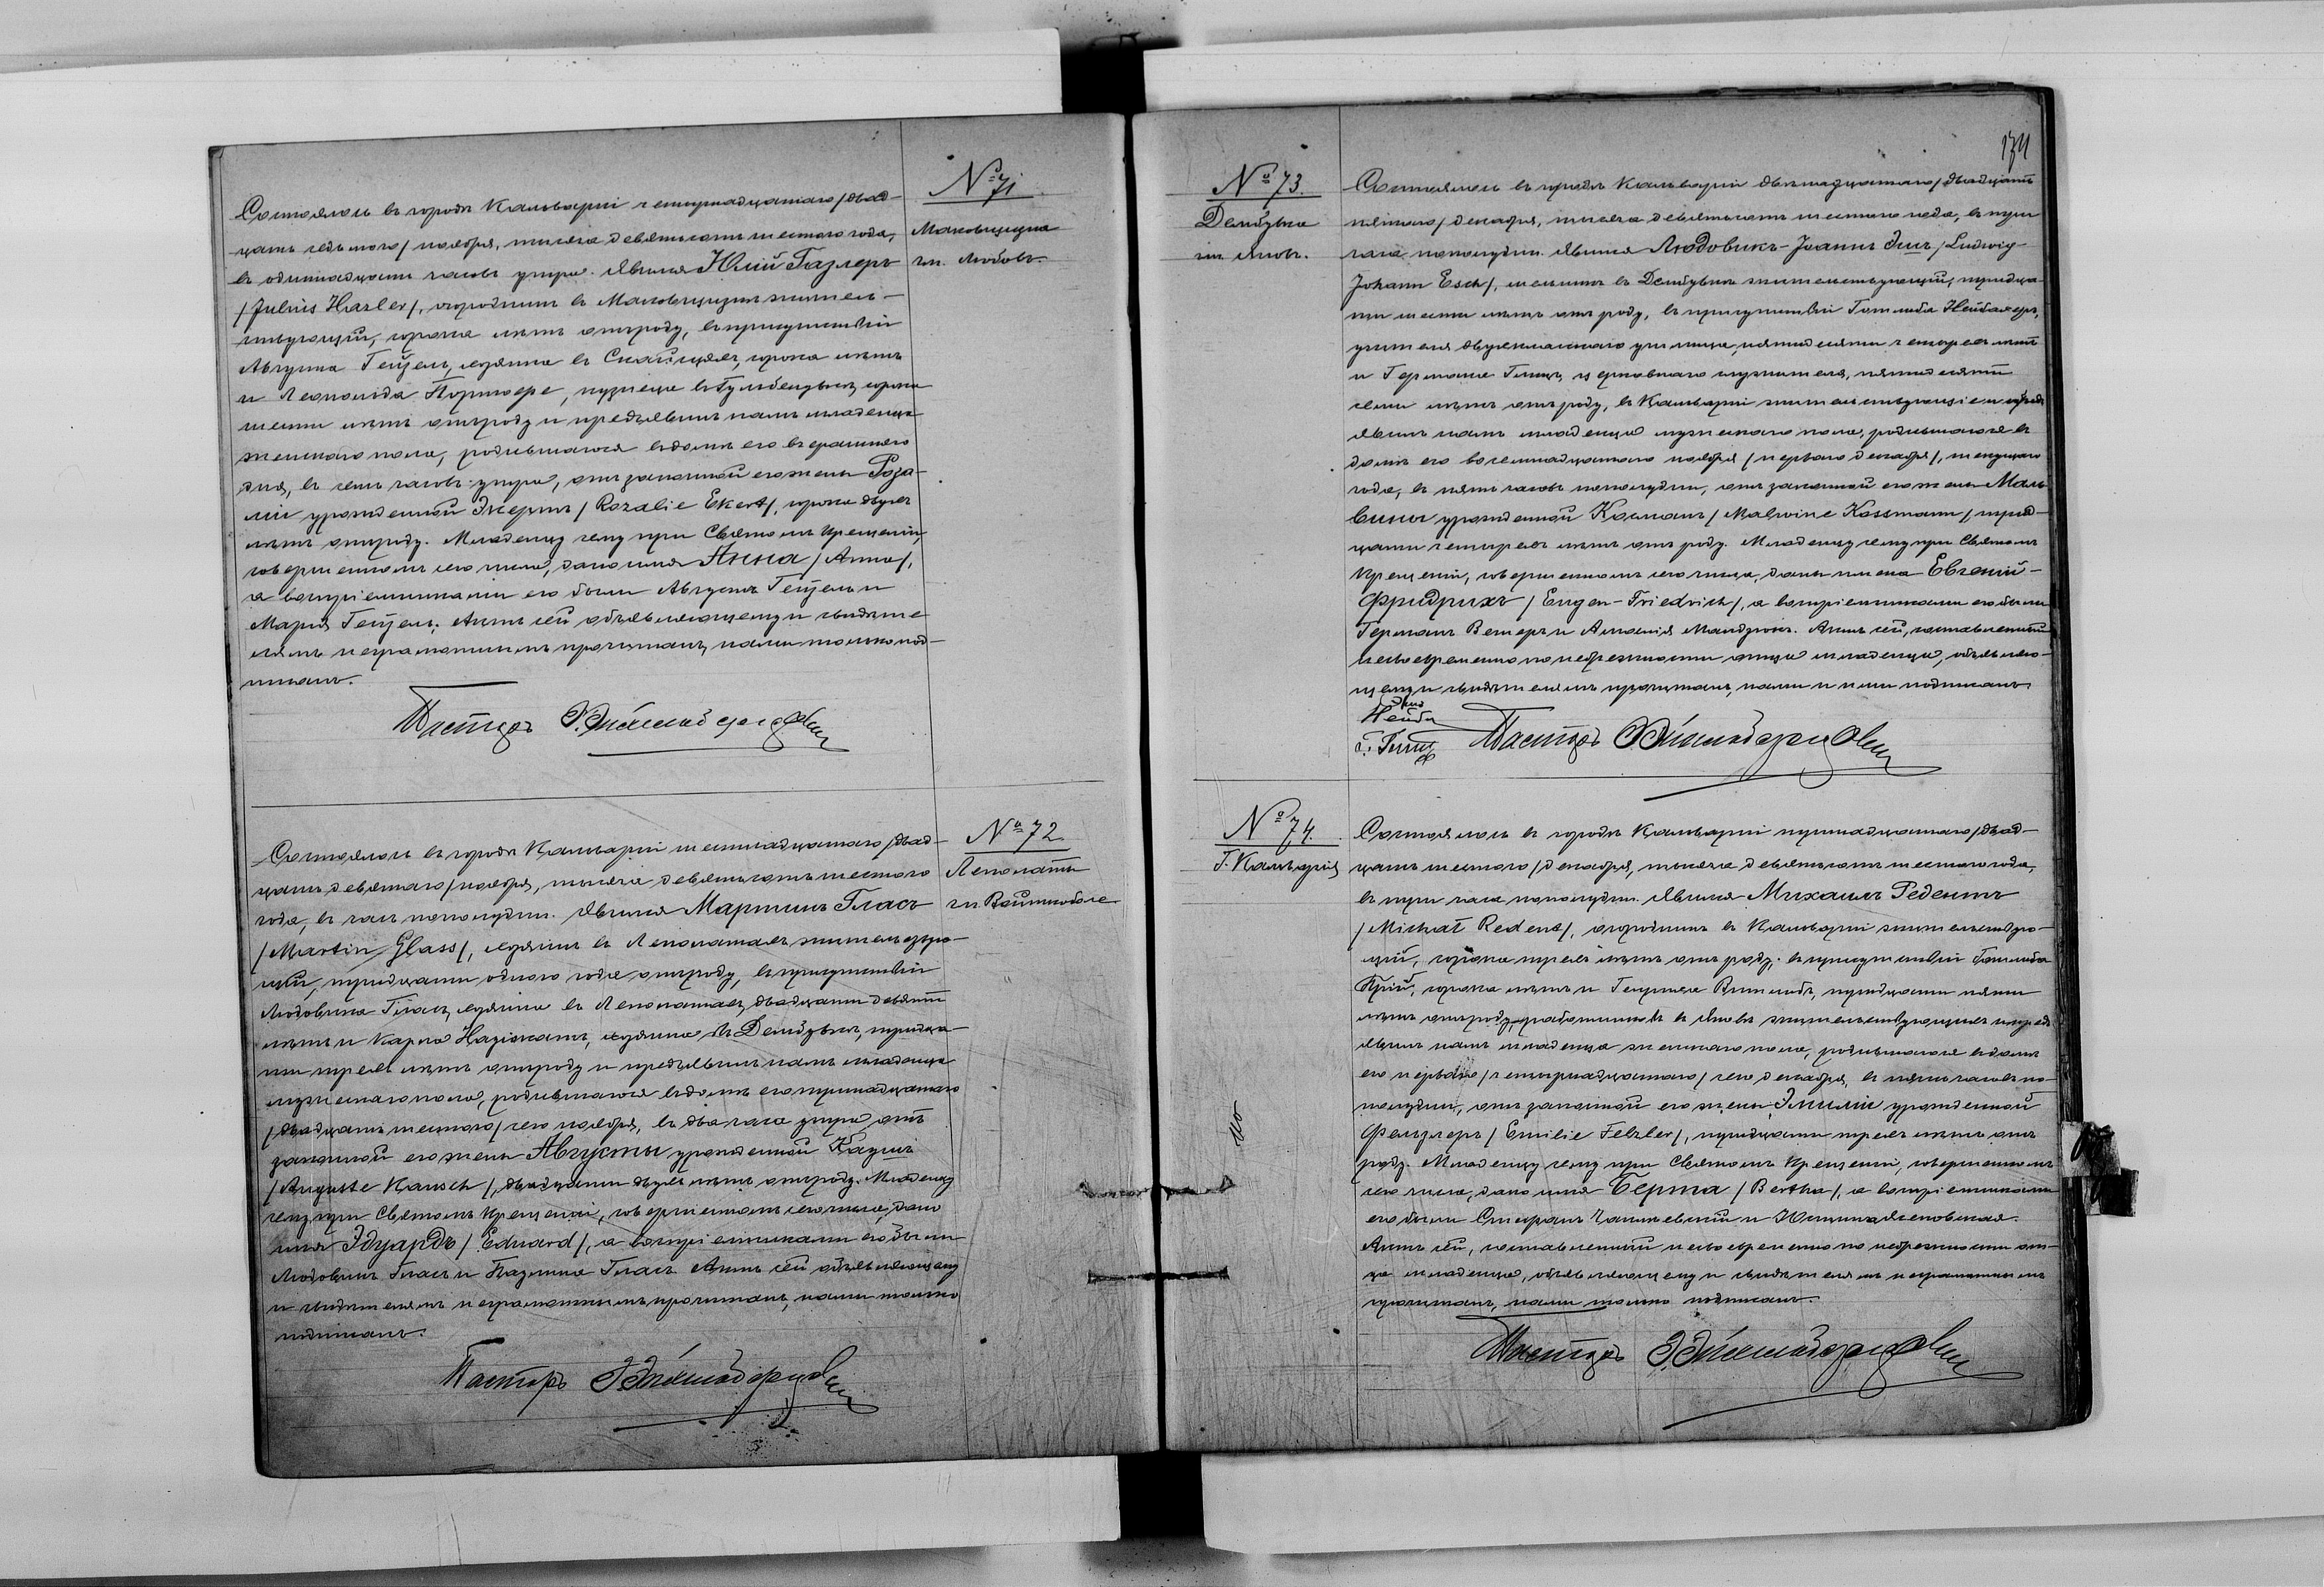 № 71
Маковщизна
гм. Любовъ.
Состоялось въ городѣ Кальваріи четырнадцатаго /двад-
цать седьмого/ ноября, тысяча девятьсотъ шестого года,
въ одиннадцать часовъ утра. Явился Юлій Газлеръ
/Julius Hazler/, огородникъ въ Маковщизнѣ житель-
ствующій, сорока лѣтъ отъ роду, въ присутствіи
Августа Гецель, хозяина въ сорока лѣтъ
и Леопольда кузнеца въ сорока
шести лѣтъ отъ роду и предъявилъ намъ младенца
женскаго пола, родившагося въ домѣ его вчерашняго
дня, въ семь часовъ утра, отъ законной его жены Роза-
ліи урожденной Экертъ /Rozalie Ekert/, сорока двухъ
лѣтъ отъ роду. Младенцу сему при Святомъ Крещеніи,
совершенномъ сего числа, дано имя Анна /Anna/,
а воспріемниками его были Августъ Гецель и
Марія Гецель. Актъ сей объявляющему и свидѣте-
лямъ неграмотнымъ прочитанъ, нами только под-
писанъ.
Пасторъ
№ 72
Лепонаты
гм. Войткоболе
Состоялось въ городѣ Кальваріи шестнадцатаго /двад-
цать девятаго/ ноября, тысяча девятьсотъ шестого
года, въ часъ пополудни. Явился Мартинъ Гласъ
/Martin Glass/, хозяинъ въ Лепонатахъ жительствую-
щій, тридцати одного года отъ роду, въ присутствіи
Людовика Гласъ, хозяина въ Лепонатахъ, двадцати девяти
лѣтъ и Карла хозяина въ Дембувкѣ, тридца-
ти трехъ лѣтъ отъ роду и предъявилъ намъ младенца
мужескаго пола, родившагося въ домѣ его тринадцатаго
/двадцать шестого/ сего ноября, въ два часа утра, отъ
законной его жены Августы урожденной Каушъ
/Auguste Kausch/, двадцати двухъ лѣтъ отъ роду. Младенцу
сему при Святомъ Крещеніи, совершенномъ сего числа, дано
имя Эдуардъ /Eduard/, а воспріемниками его были
Людовикъ Гласъ и Гласъ. Актъ сей объявляющему
и свидѣтелямъ неграмотнымъ прочитанъ, нами только
подписанъ.
Пасторъ
174
№ 73.
Дембувка
гм. Яновъ.
Состоялось въ городѣ Кальваріи двѣнадцатаго /двадцать
пятаго/ декабря, тысяча девятьсотъ шестого года, въ три
часа пополудни. Явился Людовикъ-Іоаннъ Эшъ /Ludwig-
Johann Esch/, мельникъ въ Дембувкѣ жительствующій, тридца-
ти шести лѣтъ отъ роду, въ присутствіи Готлиба
учителя двухкласснаго училища, пятидесяти четырехъ лѣтъ
и Германа церковнаго служителя, пятидесяти
семи лѣтъ отъ роду, въ Кальваріи жительствующихъ и предъ-
явилъ намъ младенца мужескаго пола, родившагося въ
домѣ его восемнадцатаго ноября /перваго декабря/, текущаго
года, въ пять часовъ пополудни, отъ законной его жены Маль-
вины урожденной Косманъ /Malwine Kossmann/ трид-
цати четырехъ лѣтъ отъ роду. Младенцу сему при Святомъ
Крещеніи, совершенномъ сего числа, даны имена Евгеній-
Фридрихъ /Eugen-Friedrich/, а воспріемниками его были
Германъ и Амалія Актъ сей, составленный
несвоевременно по небрежности отца младенца, объявляю-
щему и свидѣтелямъ прочитанъ, нами и ими подписанъ.
Эшъ
Пасторъ
№ 74.
Г. Кальварія
Состоялось въ городѣ Кальваріи тринадцатаго /двад-
цать шестого/ декабря, тысяча девятьсотъ шестого года,
въ три часа пополудни. Явился Михаилъ Редентъ
/Michał Redent/, огородникъ въ Кальваріи жительствую-
щій, сорока трехъ лѣтъ отъ роду, въ присутствіи Готлиба
сорока лѣтъ и Генриха тридцати пяти
лѣтъ отъ роду, работниковъ въ жительствующихъ и предъ-
явилъ намъ младенца женскаго пола, родившагося въ домѣ
его перваго /четырнадцатаго/ сего декабря, въ пять часовъ по-
полудни, отъ законной его жены Эмиліи урожденной
Фельзлеръ /Emilie Felzler/, тридцати трехъ лѣтъ отъ
роду. Младенцу сему при Святомъ Крещеніи, совершенномъ
сего числа, дано имя Берта /Bertha/, а воспріемниками
его были и
Актъ сей, составленный несвоевременно по небрежности от-
ца младенца, объявляющему и свидѣтелямъ неграмотнымъ
прочитанъ, нами только подписанъ.
Пасторъ